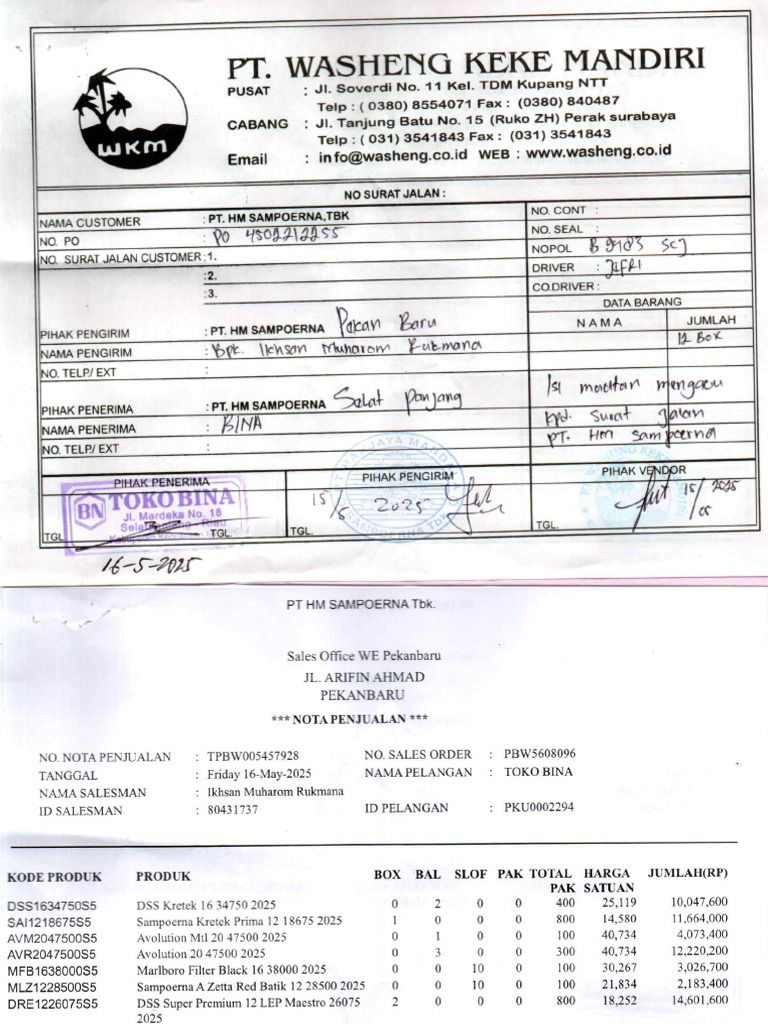 PT. WASHENG KEKE MANDIRI
PUSAT : Jl. Soverdi No. 11 Kel. TDM Kupang NTT
Telp : ( 0380) 8554071 Fax : (0380) 840487
CABANG : Jl. Tanjung Batu No. 15 (Ruko ZH) Perak surabaya
Telp : ( 031) 3541843 Fax : (031) 3541843
Email : info@washeng.co.id WEB : www.washeng.co.id
WKM
NO SURAT JALAN :
NAMA CUSTOMER : PT. HM SAMPOERNA,TBK
NO. PO : PO 4502212255
NO. SURAT JALAN CUSTOMER : 1.
:2.
:3.
NO. CONT :
NO. SEAL :
NOPOL : B 9983 SCJ
DRIVER : JEFRI
CO.DRIVER :
DATA BARANG
NAMA JUMLAH
12 Box
Isi muatan mengacu
kpd. Surat Jalan
PT. Hm Sampoerna
PIHAK PENGIRIM : PT. HM SAMPOERNA Pekan Baru
NAMA PENGIRIM : Bpk. Ikhsan Muharom Rukmana
NO. TELP/ EXT :
PIHAK PENERIMA : PT. HM SAMPOERNA Selat Panjang
NAMA PENERIMA : BINA
NO. TELP/ EXT :
PIHAK PENERIMA PIHAK PENGIRIM PIHAK VENDOR
BN TOKO BINA
Jl. Merdeka No. 18
Selatpanjang - Riau
15/5 2025
15/05 2025
TGL. TGL. TGL. TGL.
16-5-2025
PT HM SAMPOERNA Tbk.
Sales Office WE Pekanbaru
JL. ARIFIN AHMAD
PEKANBARU
*** NOTA PENJUALAN ***
NO. NOTA PENJUALAN : TPBW005457928 NO. SALES ORDER : PBW5608096
TANGGAL : Friday 16-May-2025 NAMA PELANGAN : TOKO BINA
NAMA SALESMAN : Ikhsan Muharom Rukmana
ID SALESMAN : 80431737 ID PELANGAN : PKU0002294
KODE PRODUK PRODUK BOX BAL SLOF PAK TOTAL HARGA JUMLAH(RP)
PAK SATUAN
DSS1634750S5 DSS Kretek 16 34750 2025 0 2 0 0 400 25,119 10,047,600
SAI1218675S5 Sampoerna Kretek Prima 12 18675 2025 1 0 0 0 800 14,580 11,664,000
AVM2047500S5 Avolution Mtl 20 47500 2025 0 1 0 0 100 40,734 4,073,400
AVR2047500S5 Avolution 20 47500 2025 0 3 0 0 300 40,734 12,220,200
MFB1638000S5 Marlboro Filter Black 16 38000 2025 0 0 10 0 100 30,267 3,026,700
MLZ1228500S5 Sampoerna A Zetta Red Batik 12 28500 2025 0 0 10 0 100 21,834 2,183,400
DRE1226075S5 DSS Super Premium 12 LEP Maestro 26075 2 0 0 0 800 18,252 14,601,600
2025